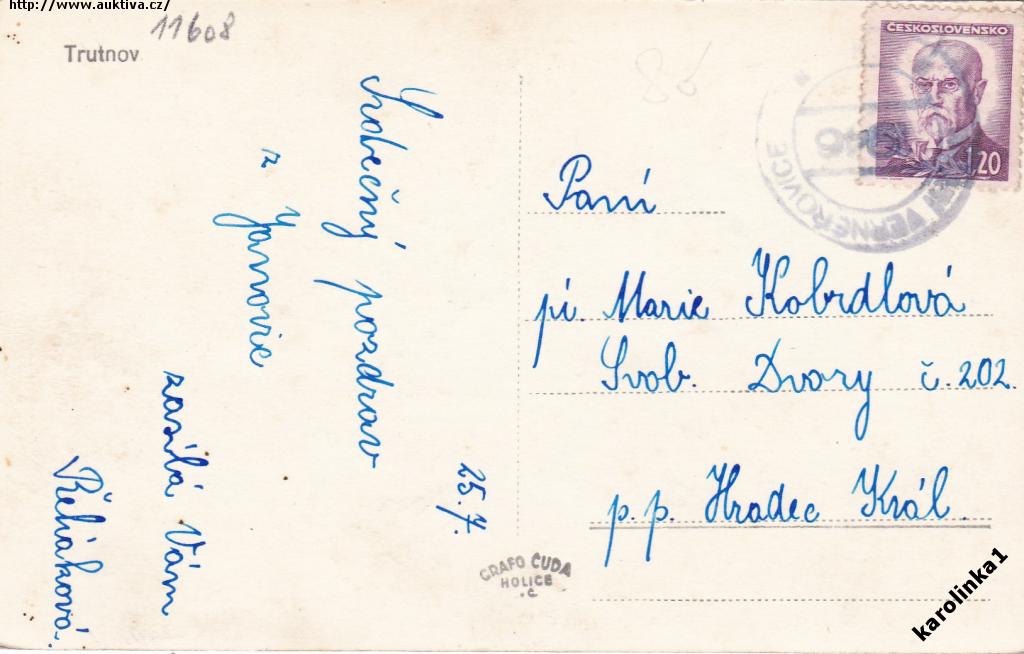 http://www.auktiva.cz/
11608
Trutnov
86
Srdečný pozdrav
z Janovic
zasílá Vám
Řeháková.
25.7.
ČESKOSLOVENSKO
1.20
VERNEŘOVICE
Paní
pí. Marie Kobrdlová
Svob. Dvory č. 202.
p. p. Hradec Král.
GRAFO ČUDA
HOLICE
.č
karolinka1